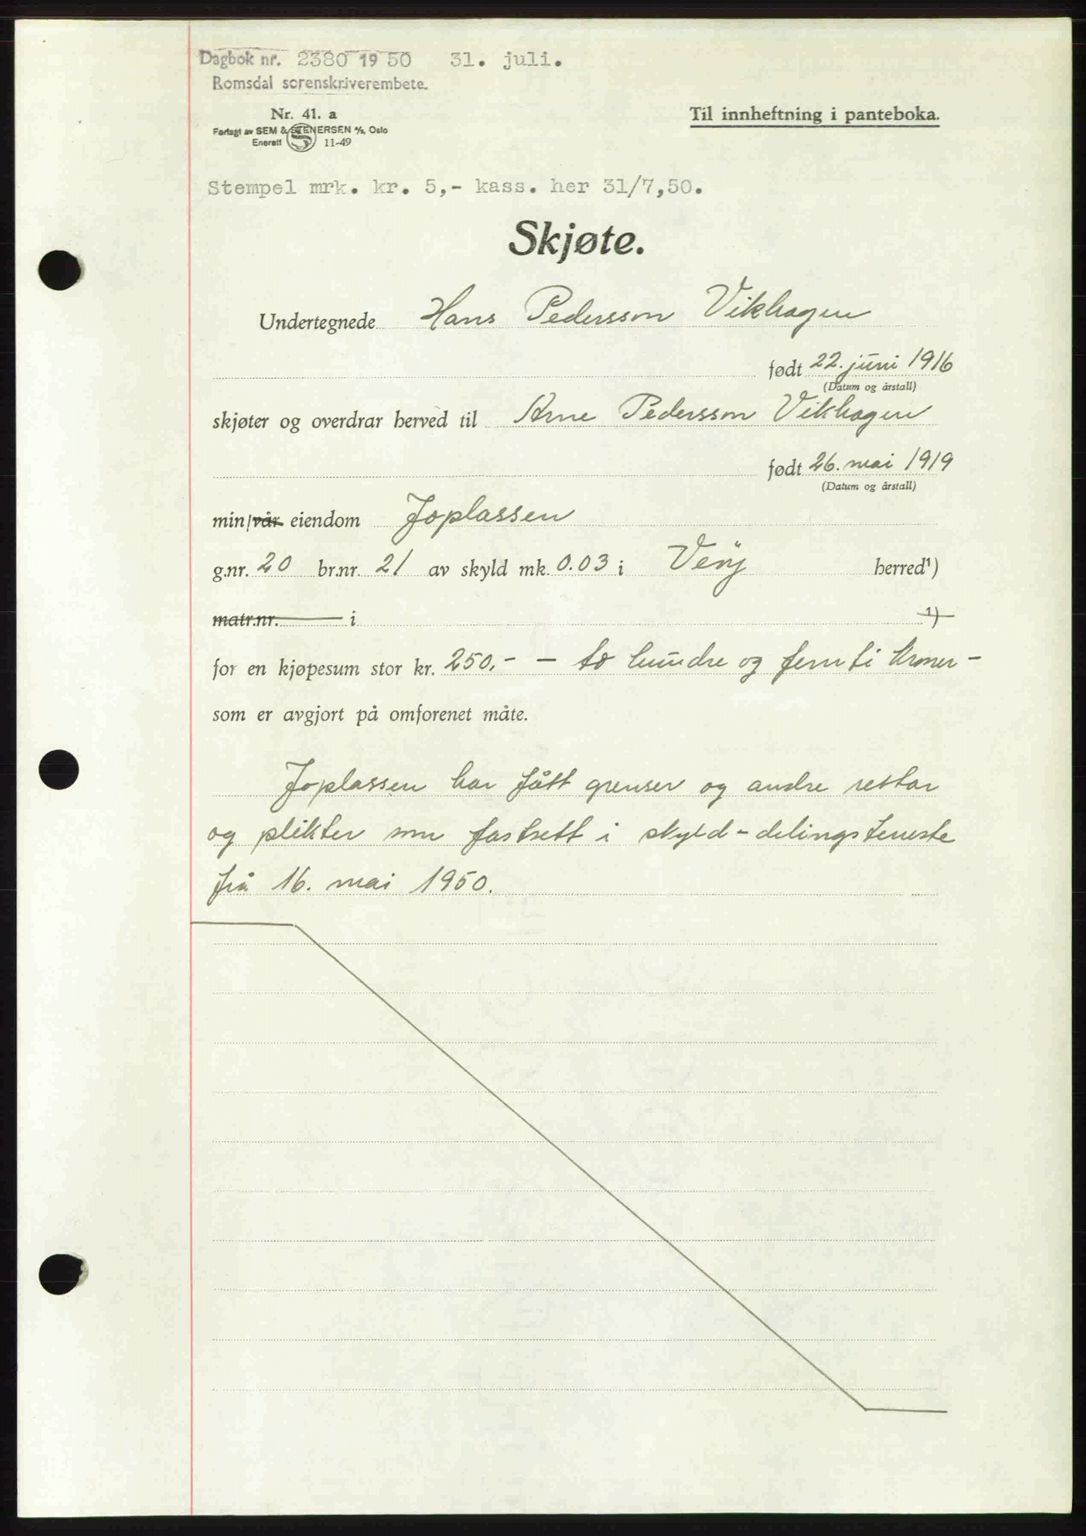 Dagbok nr. 2380 1950 31. juli.
Romsdal sorenskriverembete.
Nr. 41. a
Forlagt av SEM & STENERSEN A/S, Oslo
Enerett 11-49
Til innheftning i panteboka.
Stempel mrk. kr. 5,- kass. her 31/7,50.
Skjøte.
Undertegnede Hans Pedersson Vikhagen
født 22. juni 1916
(Datum og årstall)
skjøter og overdrar herved til Arne Pedersson Vikhagen
født 26. mai 1919
(Datum og årstall)
min/vår eiendom Joplassen
g.nr. 20 br.nr. 21 av skyld mk. 0.03 i Vøy herred¹)
matr.nr. i ¹)
for en kjøpesum stor kr. 250,- - to hundre og femti kroner -
som er avgjort på omforenet måte.
Joplassen har fått grenser og andre rettar
og plikter som fastsett i skyld-delingsteneste
frå 16. mai 1950.